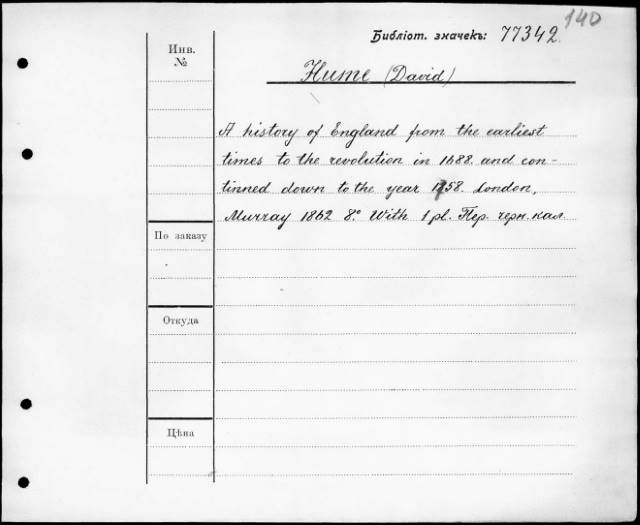 140
Библіот. значекъ: 77342.
Инв.
№
Hume (David)
A history of England from the earliest
times to the revolution in 1688. and con-
tinned down to the year 1758. London,
Murray 1862 8° With 1 pl. Пер. черн. кал.
По заказу
Откуда
Цѣна